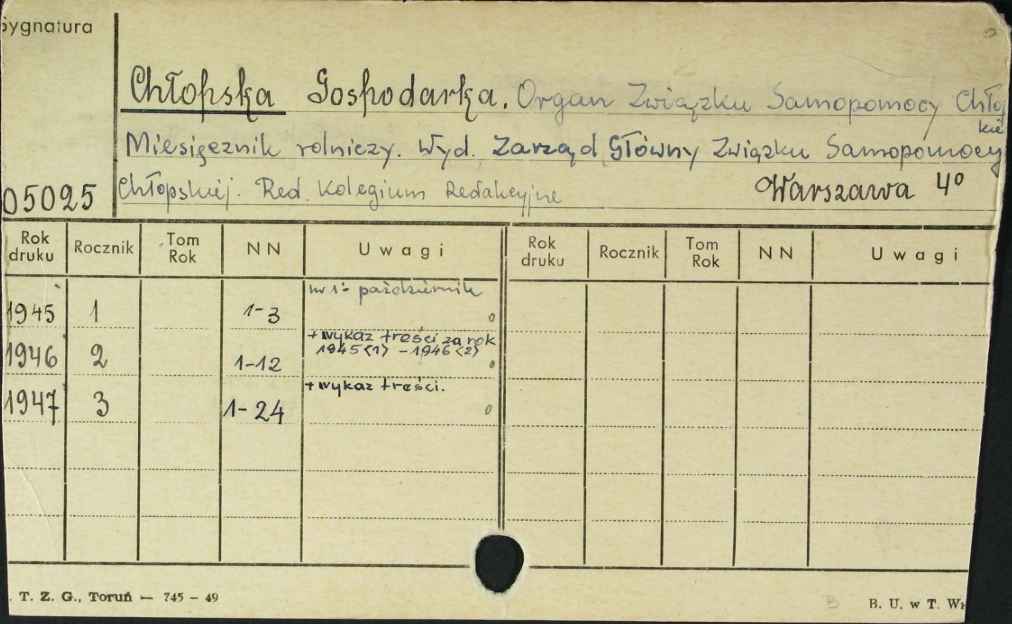 Sygnatura
Chłopska Gospodarka. Organ Związku Samopomocy Chłop
kiej
Miesięcznik rolniczy. Wyd. Zarząd Główny Związku Samopomocy
Chłopskiej. Red. Kolegium Redakcyjne Warszawa 4°
05025
Rok druku Rocznik Tom Rok NN Uwagi Rok druku Rocznik Tom Rok NN Uwagi
nr 1: październik
1945 1 1-3
+ wykaz treści za rok
1945<1> - 1946<2>
1946 2 1-12
+ wykaz treści.
1947 3 1-24
. T. Z. G., Toruń — 745 – 49
B. U. w T.